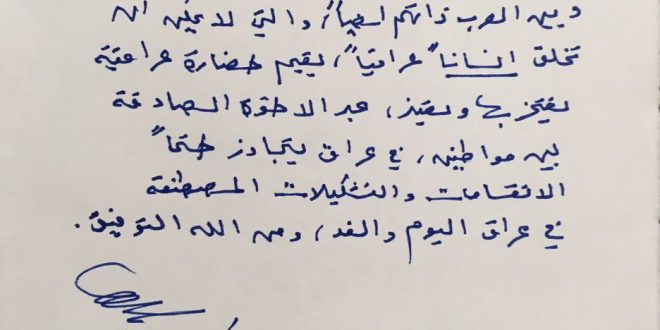 وبين العرب ذاتهم ايضاً، والتي لا يمكن ان
تخلق انساناً "عراقياً"، يقيم حضارة عراقية
يفتخر بها ويعتز، عبر الاخوة الصادقة
بين مواطنيه، في عراق يتجاوز حتماً
الانقسامات والتشكيلات المصطنعة
في عراق اليوم والغد، ومن الله التوفيق.